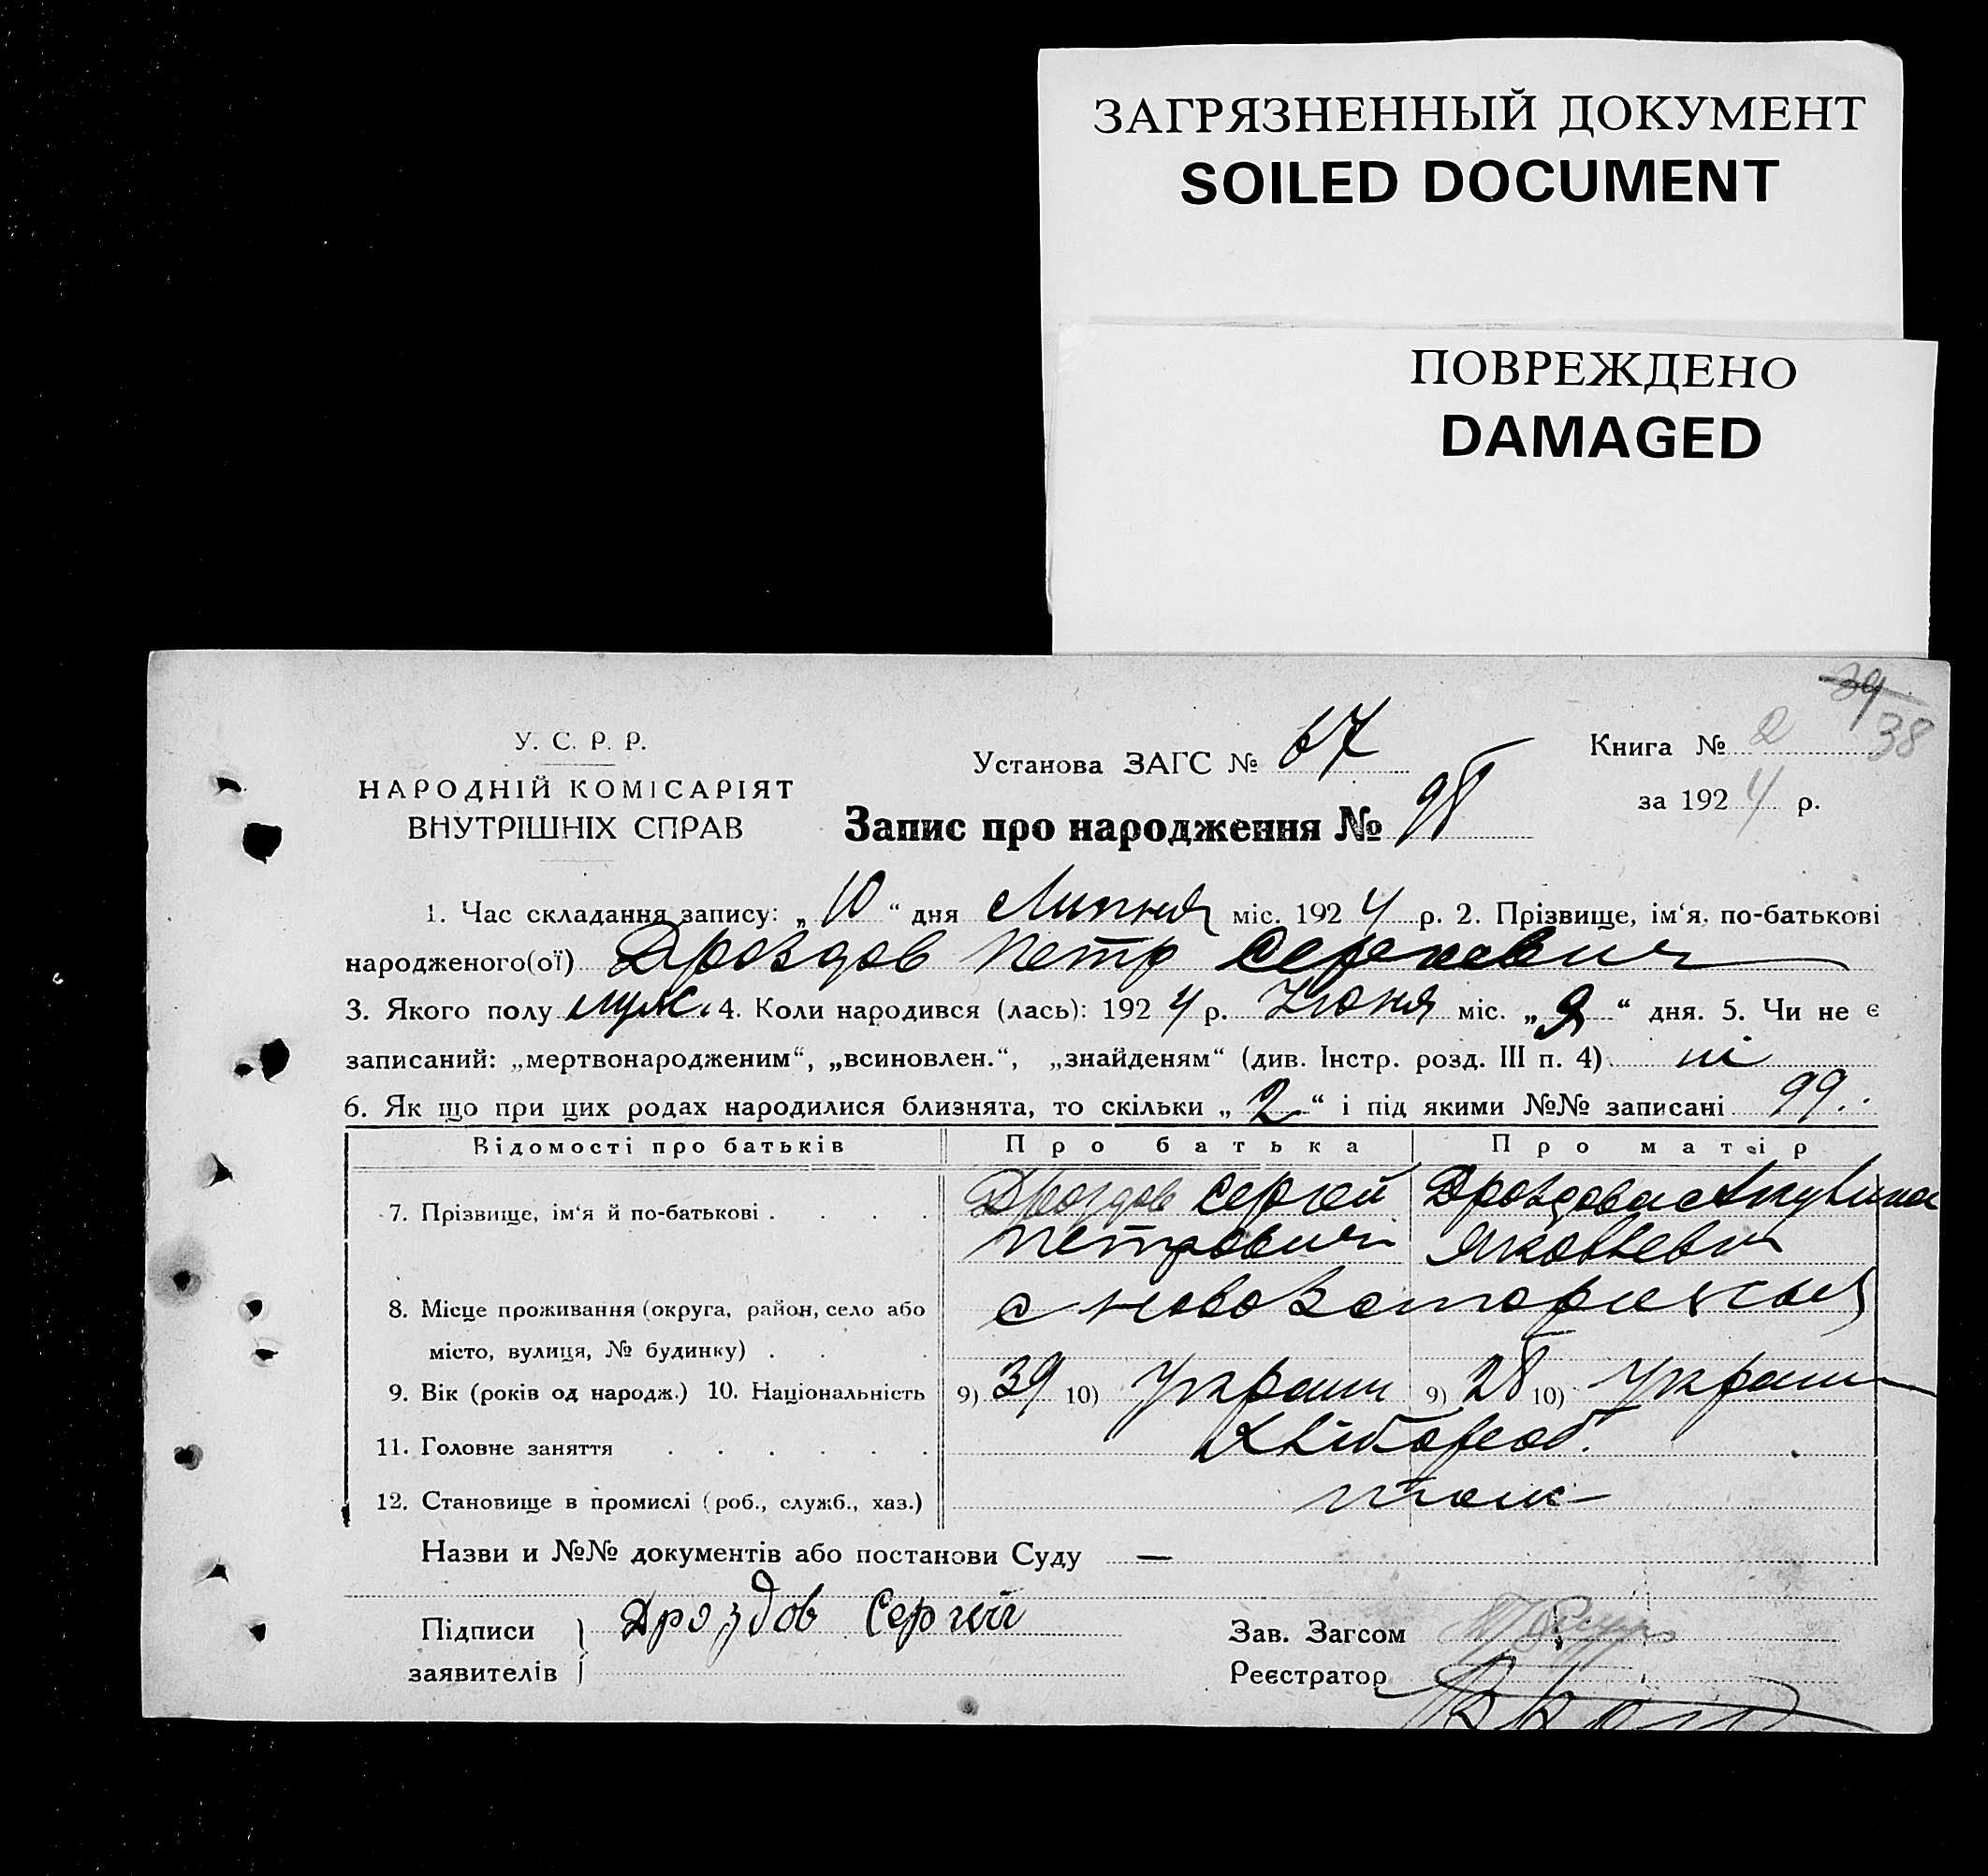 ЗАГРЯЗНЕННЫЙ ДОКУМЕНТ
SOILED DOCUMENT
ПОВРЕЖДЕНО
DAMAGED
39
38
У. С. Р. Р.
НАРОДНІЙ КОМІСАРІЯТ
ВНУТРІШНІХ СПРАВ
Установа ЗАГС № 67
Книга № 2
за 1924 р.
Запис про народження № 98
1. Час складання запису: „10“ дня Липня міс. 1924 р. 2. Прізвище, ім‘я, по-батькові
народженого(ої) Дроздов Петр Сергеевич
3. Якого полу муж. 4. Коли народився (лась): 1924 р. Июня міс. „9“ дня. 5. Чи не є
записаний: „мертвонародженим“, „всиновлен.“, „знайденям“ (див. Інстр. розд. III п. 4) ні
6. Як що при цих родах народилися близнята, то скільки „2“ і під якими №№ записані 99.
Відомості про батьків Про батька Про матір
7. Прізвище, ім‘я й по-батькові . . . . Дроздов Сергей Дроздова Акулина
Петрович Яковлевн
8. Місце проживання (округа, район, село або с
місто, вулиця, № будинку) . . .
9. Вік (років од народж.) 10. Національність 9) 39 10) Украин 9) 28 10) Украин
11. Головне заняття . . . . . . Хлібороб.
12. Становище в промислі (роб., служб., хаз.)
Назви и №№ документів або постанови Суду —
Підписи Дроздов Сергій Зав. Загсом
заявителів Реєстратор